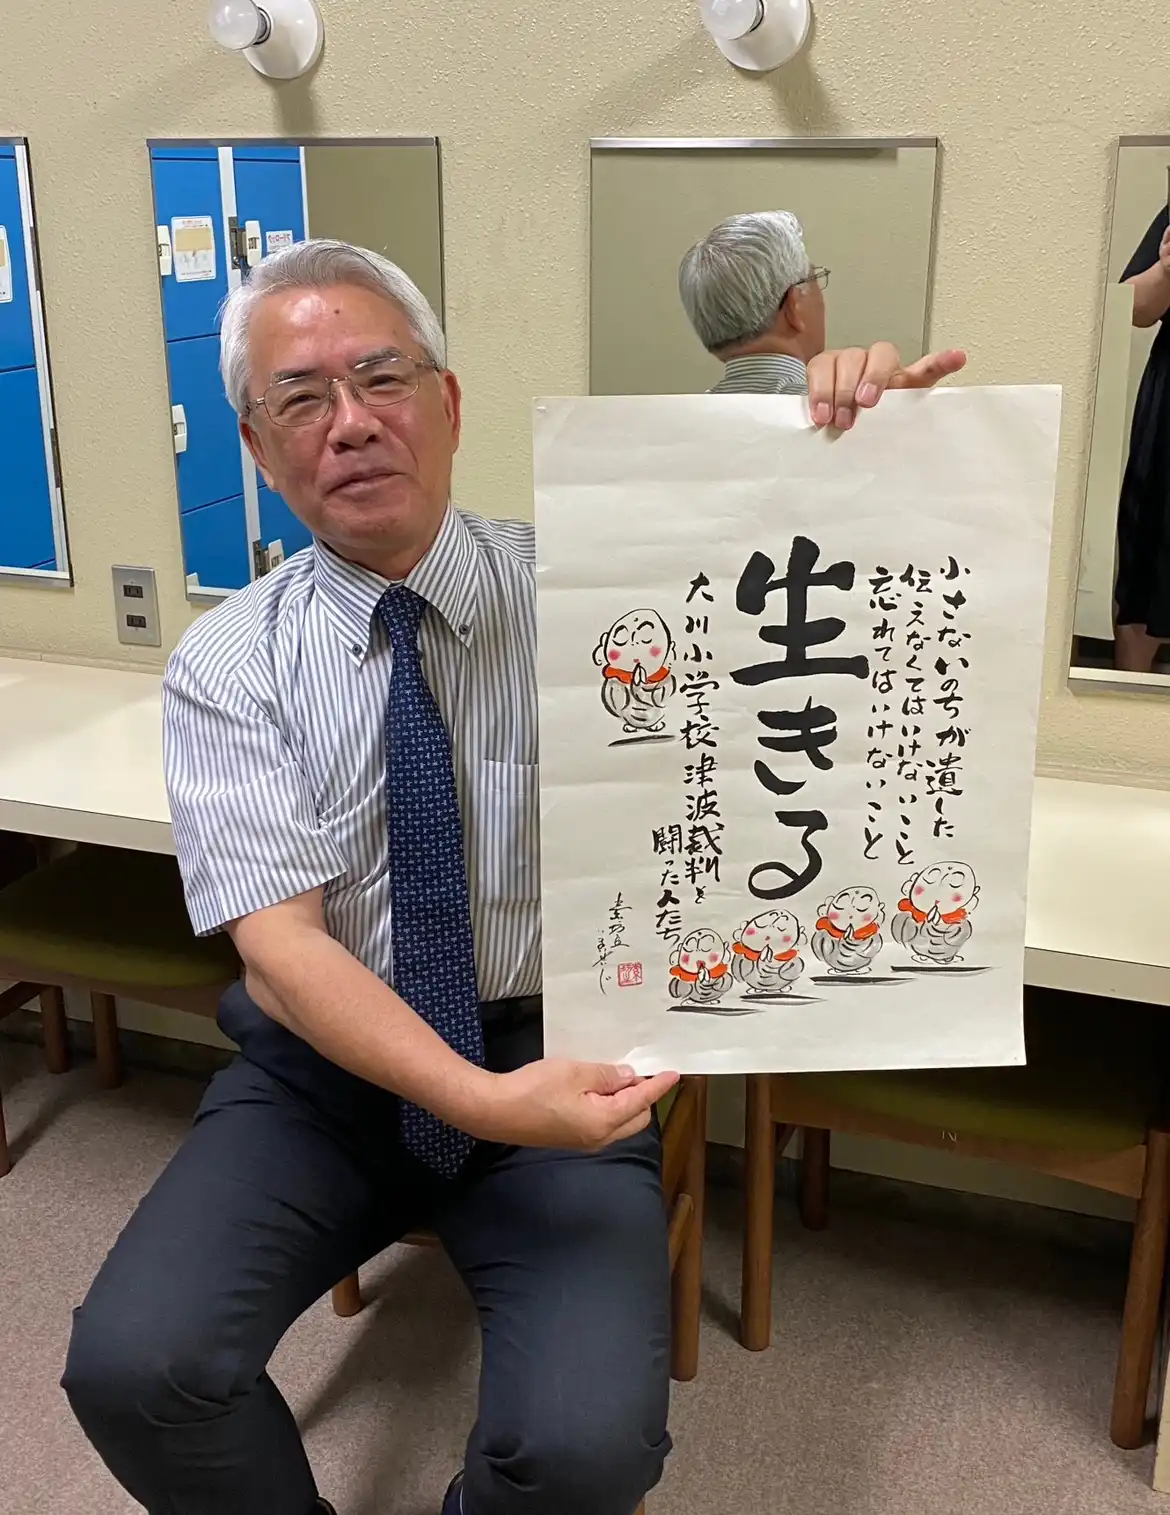 小さないのちが遺した
伝えなくてはいけないこと
忘れてはいけないこと
生きる
大川小学校津波裁判を
闘った人たち